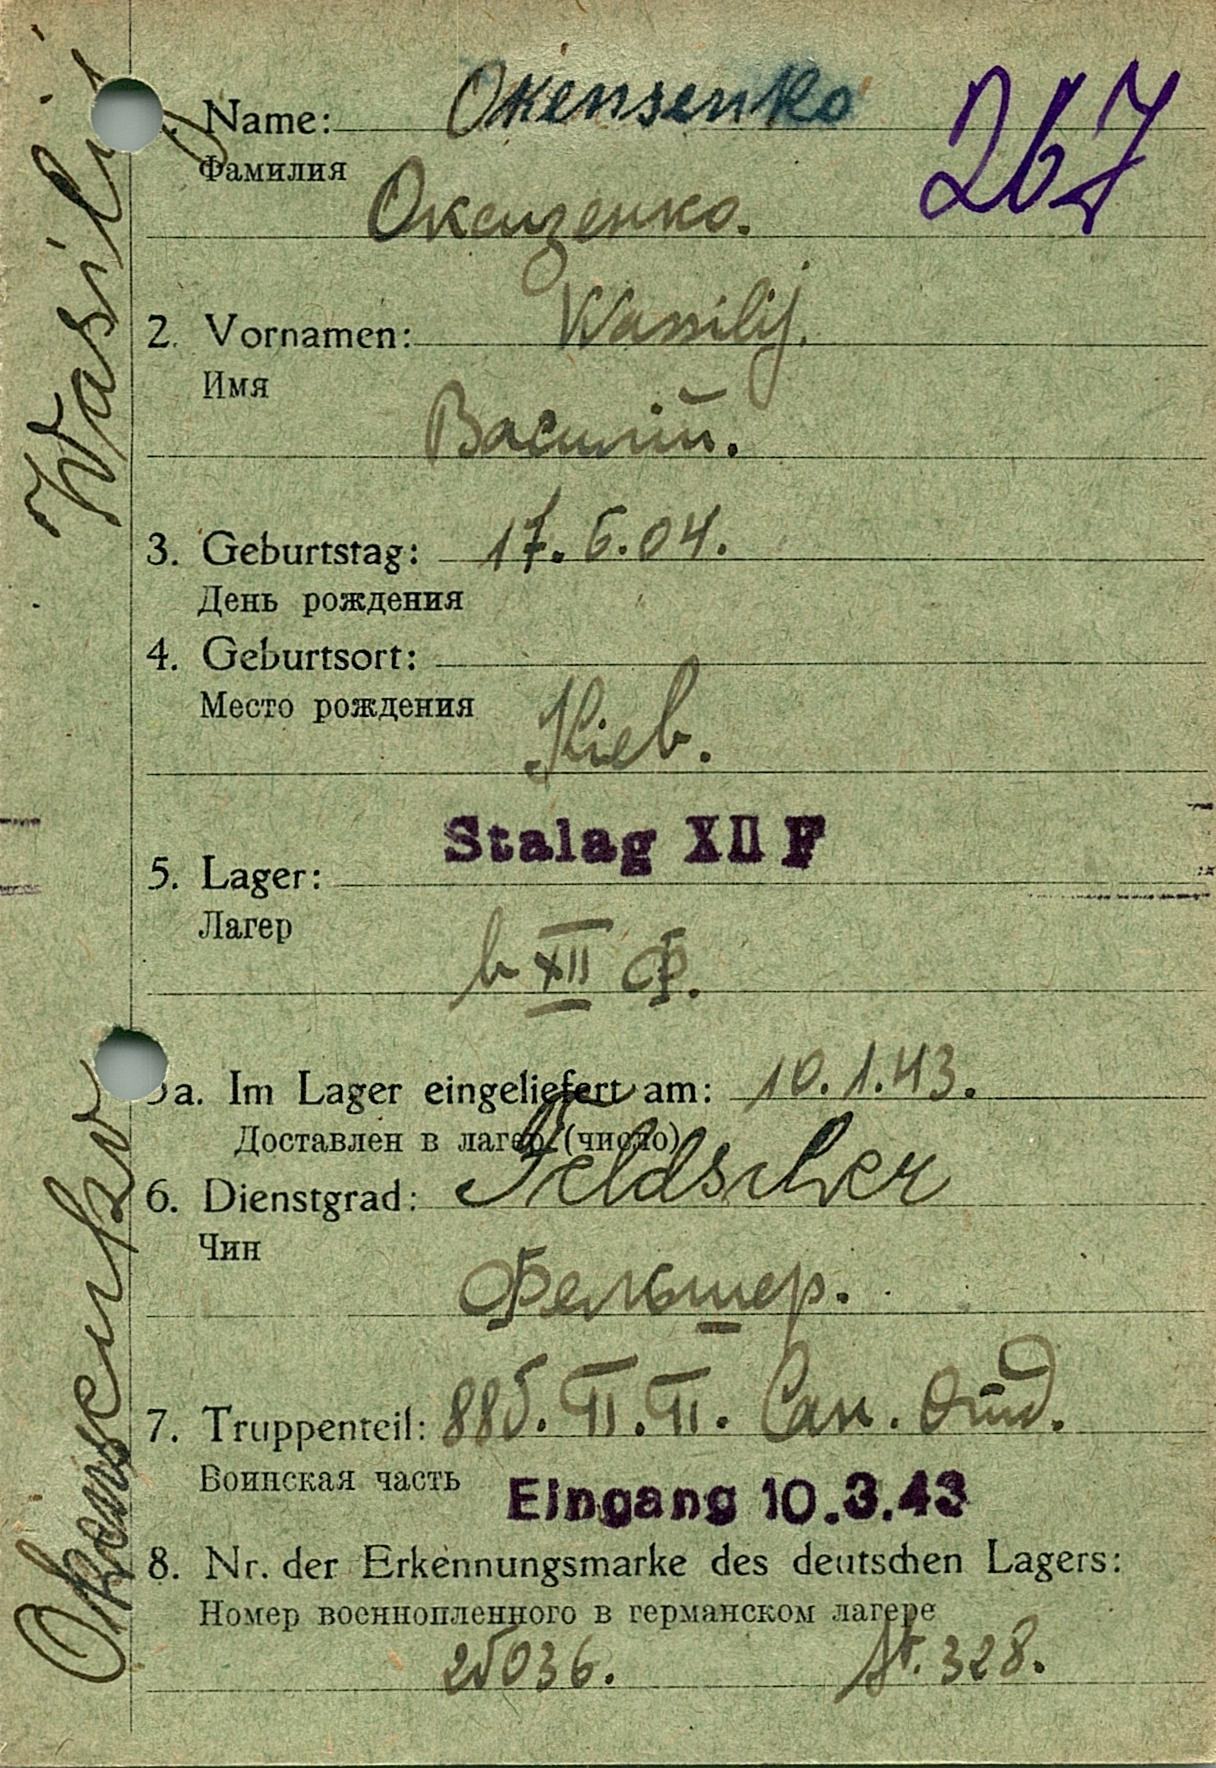 Name: Okensenko
267
Фамилия
Оксизенко.
2. Vornamen: Wassilij.
Имя
Василий.
3. Geburtstag: 17. 6. 04.
День рождения
4. Geburtsort:
Место рождения
Киев.
Stalag XII F
5. Lager:
Лагер
в XII Ф.
a. Im Lager eingeliefert am: 10. 1. 43.
Доставлен в лагер (число)
6. Dienstgrad: Feldscher
Чин
Фельшер.
7. Truppenteil: 885. П. П. Сан. Отд.
Воинская часть
Eingang 10.3.43
8. Nr. der Erkennungsmarke des deutschen Lagers:
Номер военнопленного в германском лагере
25036. St. 328.
Wasilij